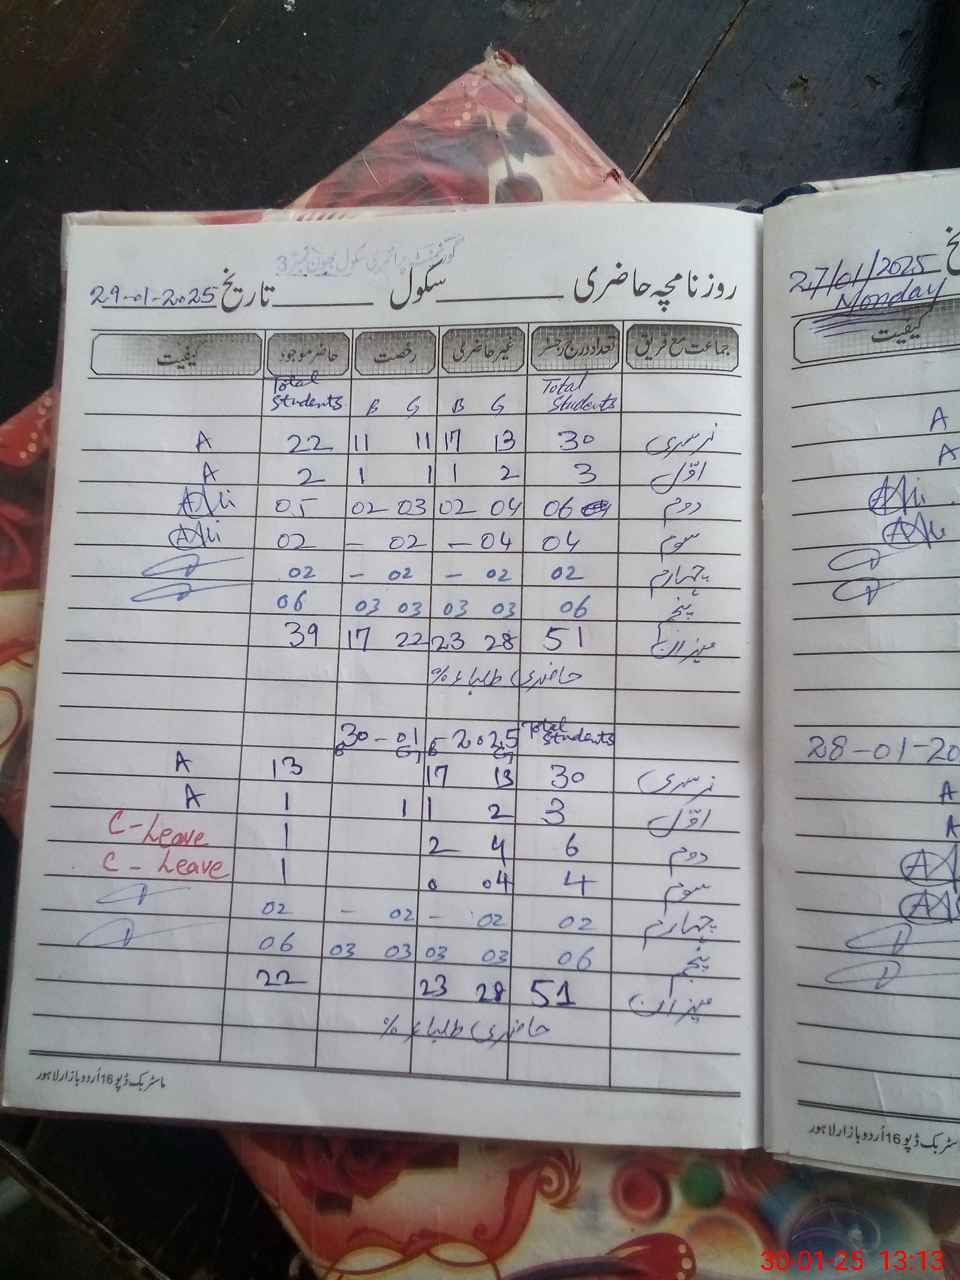 گورنمنٹ پرائمری سکول بھون نمبر 3
روزنامچہ حاضری ______ سکول ______ تاریخ 29-01-2025
جماعت مع فریق تعداد درج رجسٹر غیر حاضری رخصت حاضر موجود کیفیت
Total Students B G B G Total Students
A 22 11 11 17 13 30 نرسری
A 2 1 1 1 2 3 اوّل
Ali 05 02 03 02 04 06 دوم
Ali 02 – 02 – 04 04 سوم
02 – 02 – 02 02 چہارم
06 03 03 03 03 06 پنجم
39 17 22 23 28 51 میزان
حاضری طلباء %
30-01-2025 Total Students
B G B G
A 13 17 13 30 نرسری
A 1 1 1 2 3 اوّل
C-Leave 1 2 4 6 دوم
C-Leave 1 0 04 4 سوم
02 – 02 – 02 02 چہارم
06 03 03 03 03 06 پنجم
22 23 28 51 میزان
حاضری طلباء %
ماسٹر بک ڈپو 16 اُردو بازار لاہور
27/01/2025
Monday
کیفیت
A
A
Ali
Ali
28-01-20
A
A
ماسٹر بک ڈپو 16 اُردو بازار لاہور
30-01-25 13:13